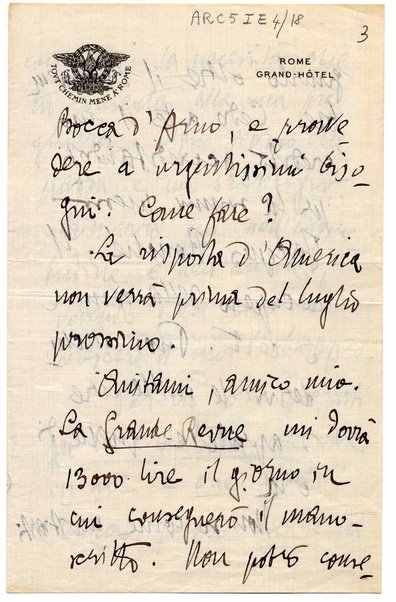 ARC5 I E 4/18
3
TOUT CHEMIN MENE A ROME
ROME
GRAND-HÔTEL
Bocca d'Arno, e provve
dere a urgentissimi biso-
gni. Come fare?
La risposta d'America
non verrà prima del luglio
prossimo.
Aiutami, amico mio.
La Grande Revue mi dovrà
13000 lire il giorno in
cui consegnerò il mano-
scritto. Non potrò conse-